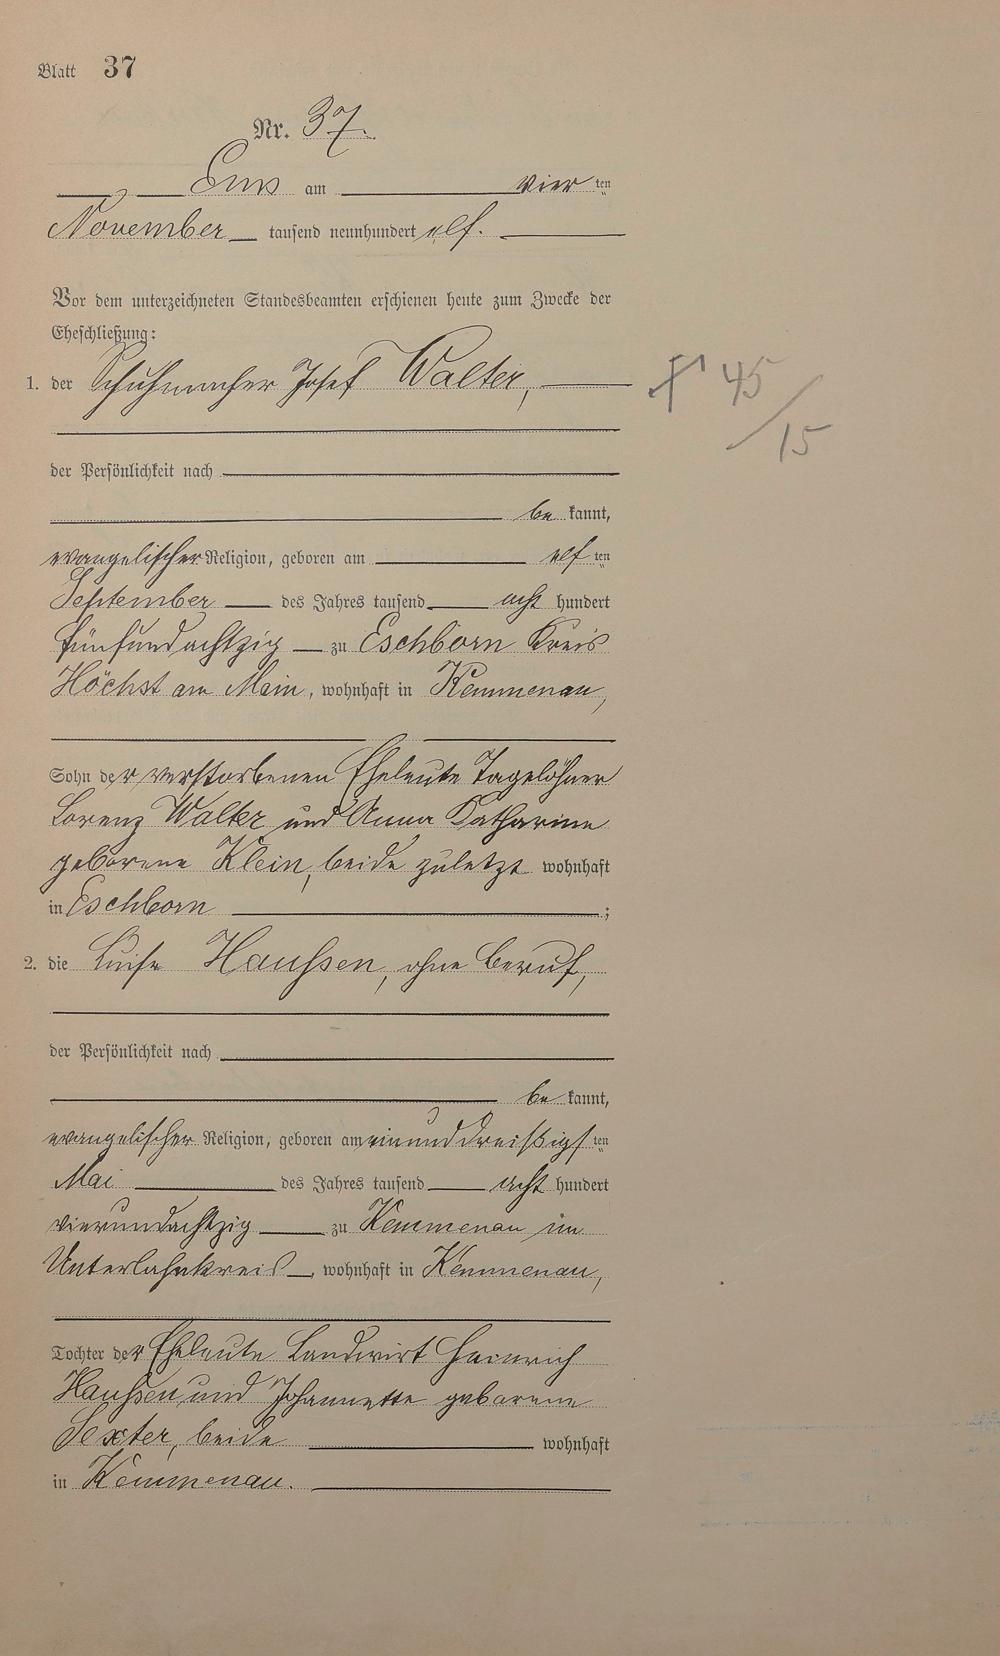 Blatt 37
Nr. 37.
Ems am vier ten
November tausend neunhundert elf.
Vor dem unterzeichneten Standesbeamten erschienen heute zum Zwecke der
Eheschließung:
1. der Schuhmacher Josef Walter,
† 45/15
der Persönlichkeit nach
be kannt,
evangelischer Religion, geboren am elf ten
September des Jahres tausend acht hundert
fünfundachtzig zu Eschborn Kreis
Höchst am Main, wohnhaft in Kemmenau,
Sohn der verstorbenen Eheleute Tagelöhner
Lorenz Walter und Anna Katharine
geborene Klein, beide zuletzt wohnhaft
in Eschborn ;
2. die Luise Haußen, ohne Beruf,
der Persönlichkeit nach
be kannt,
evangelischer Religion, geboren am einunddreißigs ten
Mai des Jahres tausend acht hundert
vierundachtzig zu Kemmenau im
Unterlahnkreis, wohnhaft in Kemmenau,
Tochter der Eheleute Landwirt Heinrich
Haußen und Johannette geborene
Sexter, beide wohnhaft
in Kemmenau.